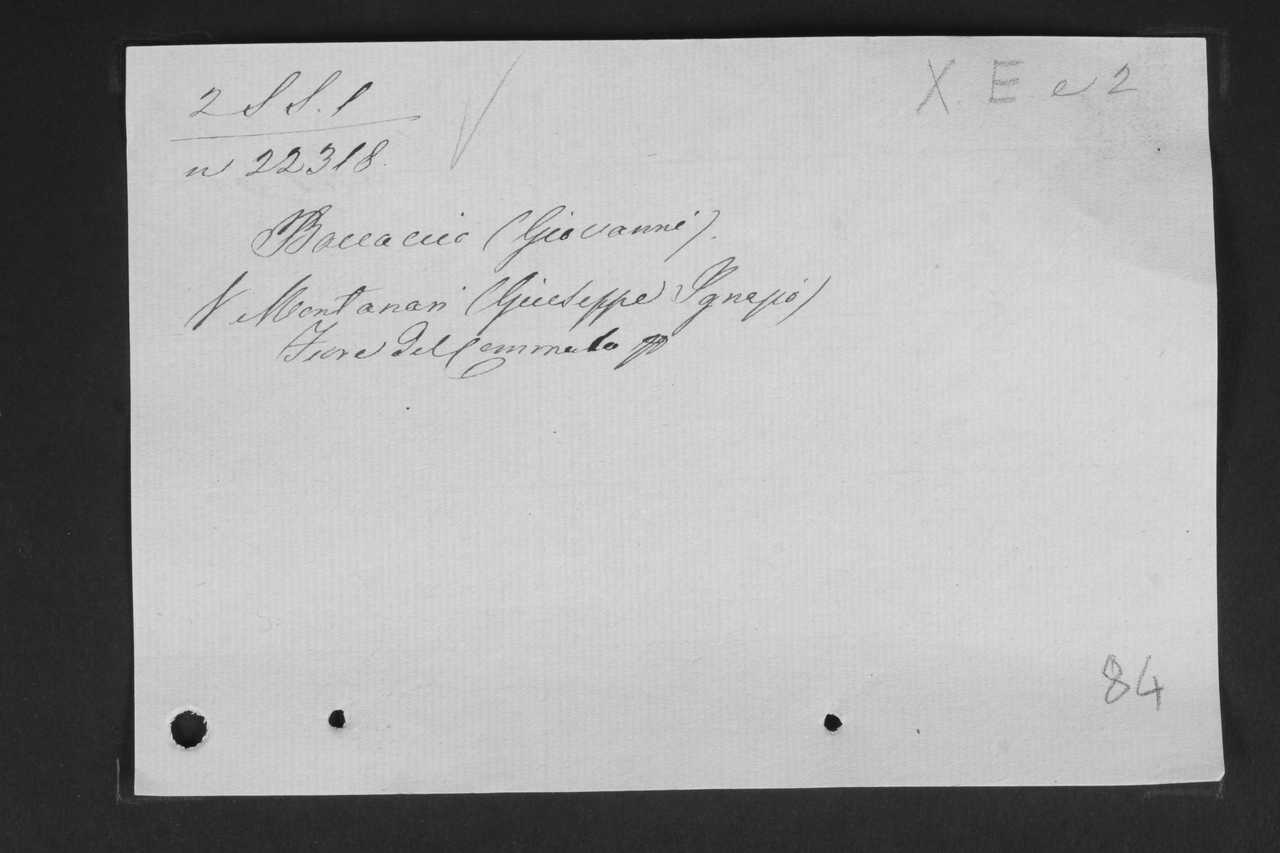 2 S S. 1
X. E. e 2
n 22318.
Boccaccio (Giovanni).
V Montanari (Giuseppe Ignazio)
Fiore del
84